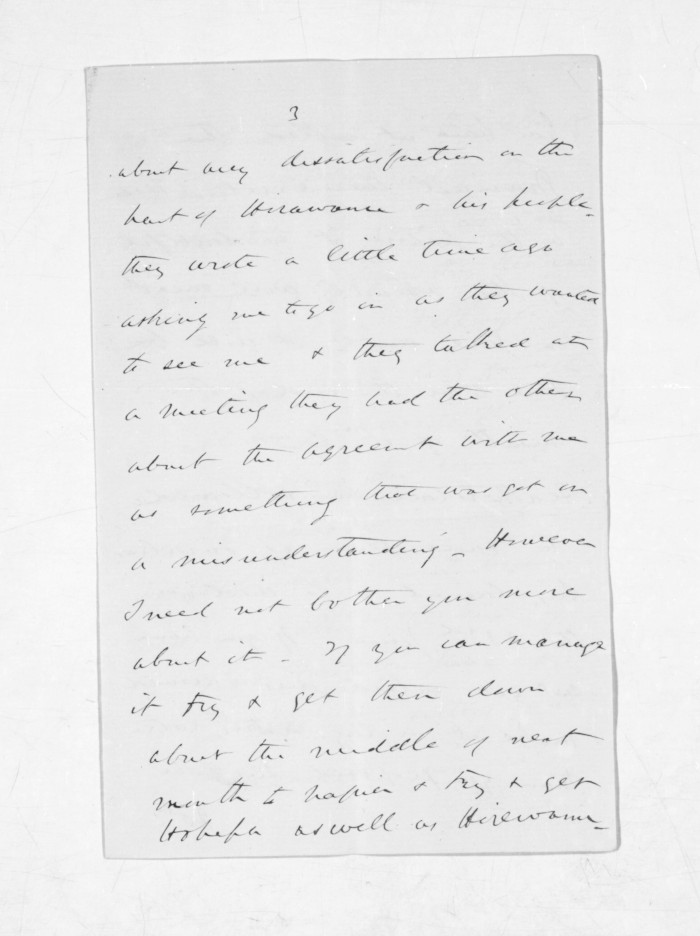 3
about any dissatisfaction on the
part of Hirawanu & his people -
they wrote a little time ago
asking me to go in as they wanted
to see me & they talked at
a meeting they had the other
about the agreeent with me
as something that was got on
a misunderstanding - However
I need not bother you more
about it - If you can manage
it try & get them down
about the middle of next
month to napier & try & get
Hohepa as well as Hirewanu -